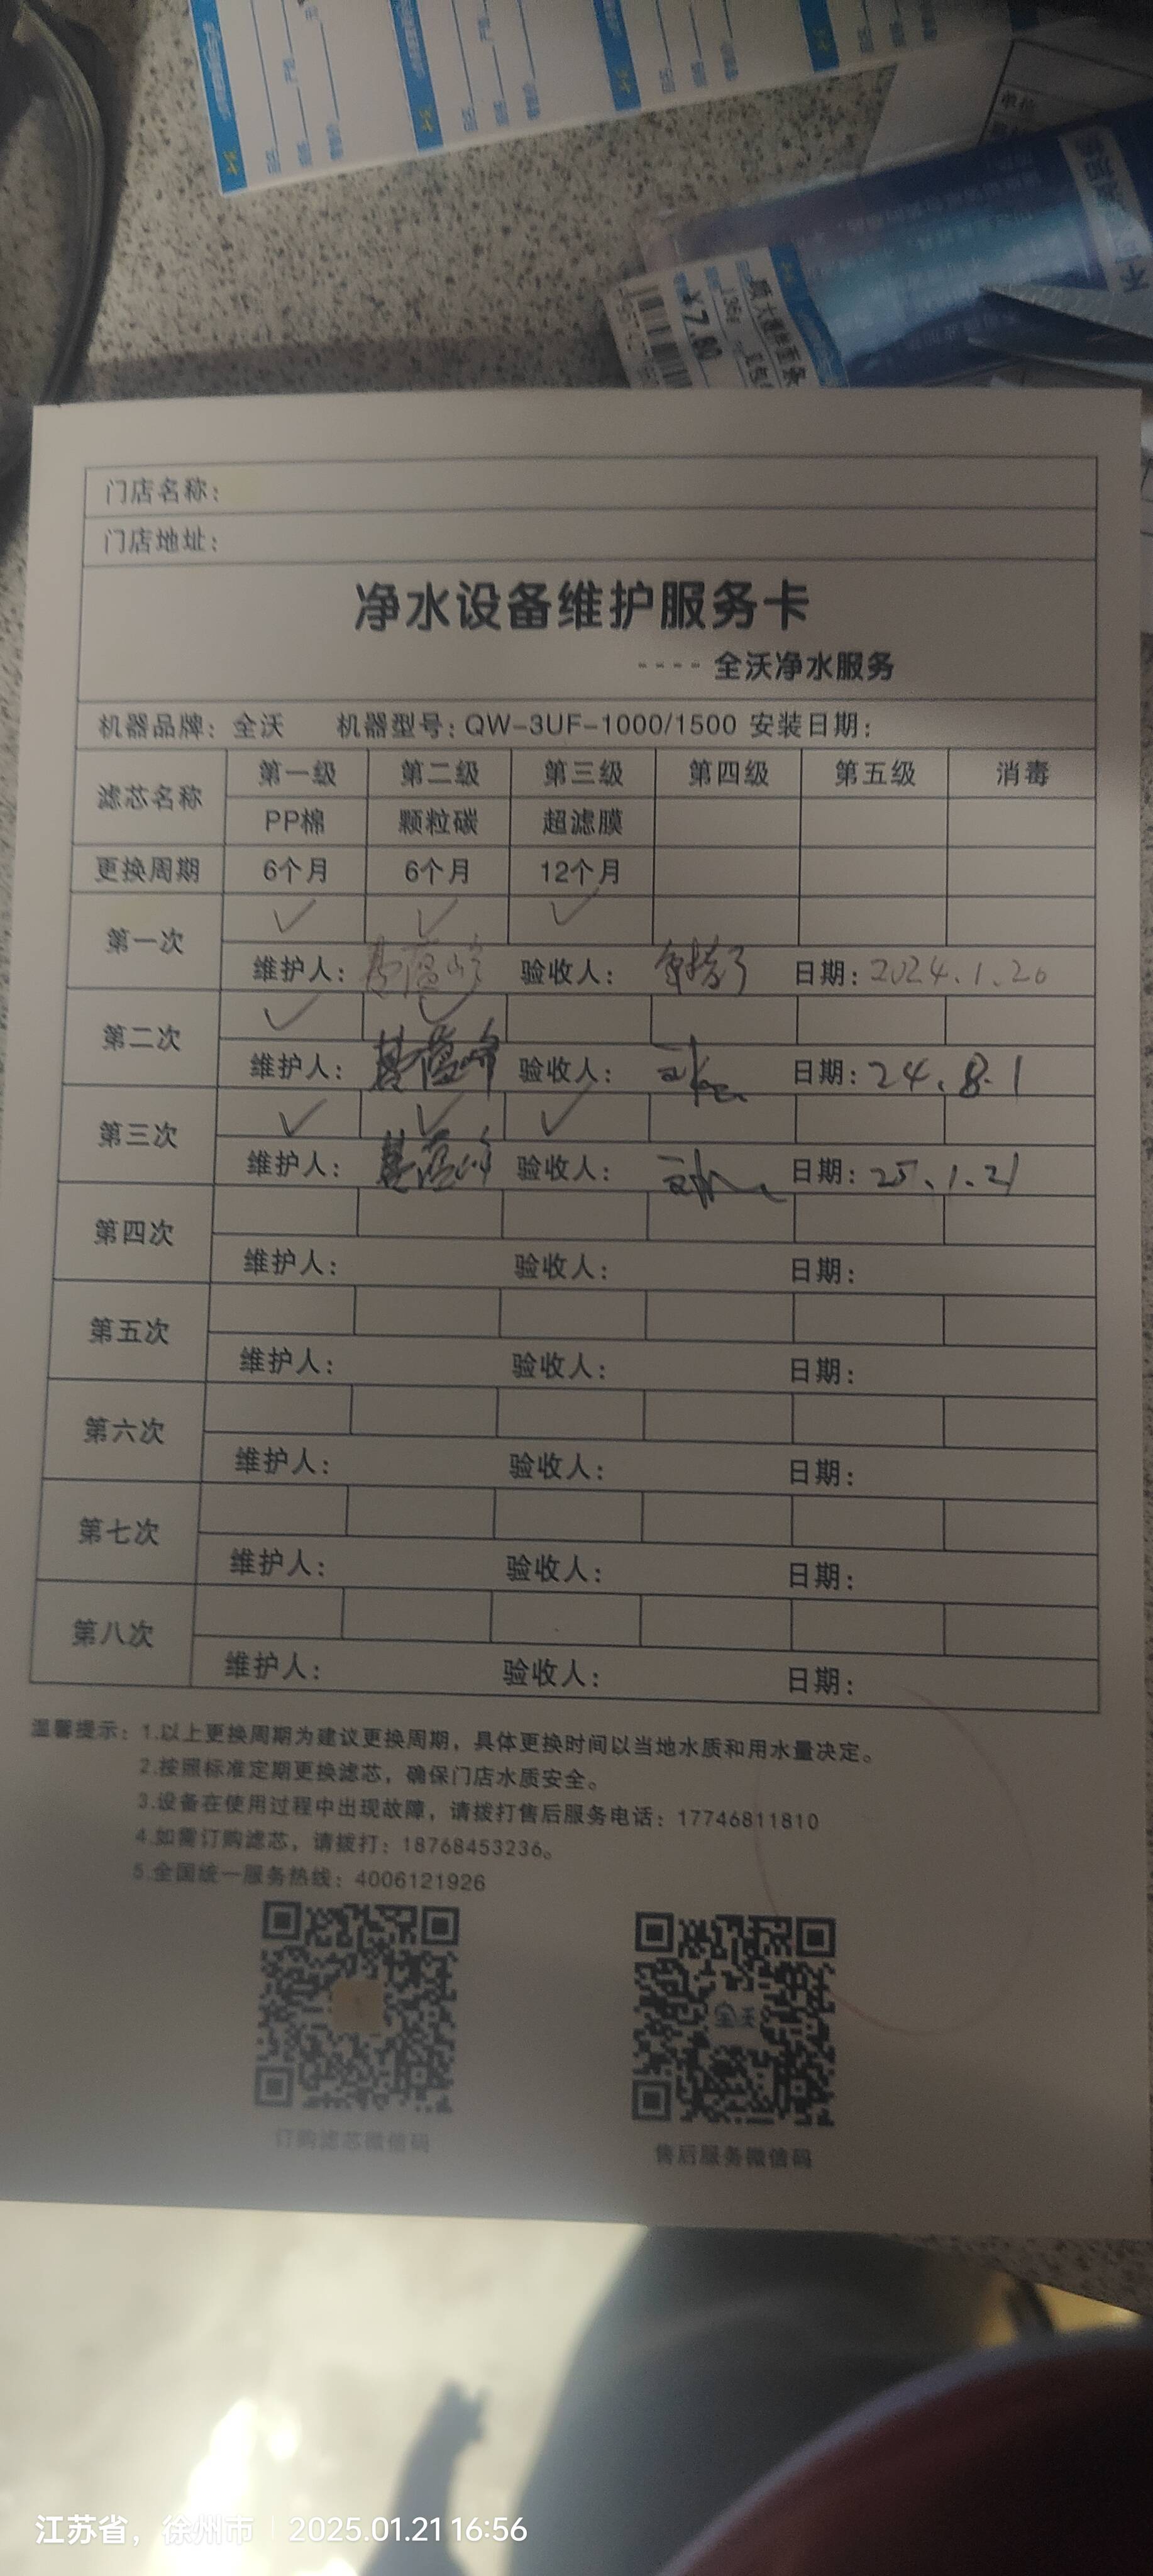 ¥7.80
门店名称：
门店地址：
净水设备维护服务卡
---- 全沃净水服务
机器品牌：全沃 机器型号：QW-3UF-1000/1500 安装日期：
滤芯名称 第一级 第二级 第三级 第四级 第五级 消毒
PP棉 颗粒碳 超滤膜
更换周期 6个月 6个月 12个月
第一次 ✓ ✓ ✓
维护人： 验收人： 日期：2024.1.20
第二次 ✓ ✓
维护人： 验收人： 日期：24.8.1
第三次 ✓ ✓ ✓
维护人： 验收人： 日期：25.1.21
第四次
维护人： 验收人： 日期：
第五次
维护人： 验收人： 日期：
第六次
维护人： 验收人： 日期：
第七次
维护人： 验收人： 日期：
第八次
维护人： 验收人： 日期：
温馨提示：1.以上更换周期为建议更换周期，具体更换时间以当地水质和用水量决定。
2.按照标准定期更换滤芯，确保门店水质安全。
3.设备在使用过程中出现故障，请拨打售后服务电话：17746811810
4.如需订购滤芯，请拨打：18768453236。
5.全国统一服务热线：4006121926
订购滤芯微信码 售后服务微信码
江苏省，徐州市 2025.01.21 16:56